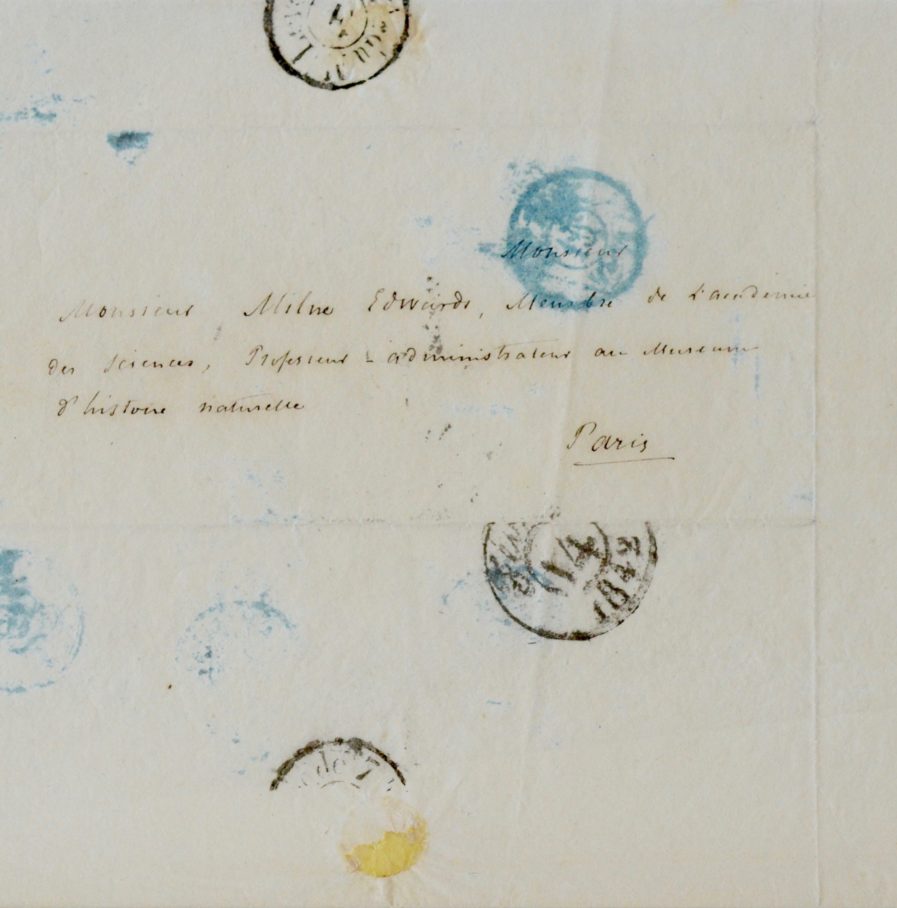 Monsieur
Monsieur Milne Edwards, Membre de L'académie
des Sciences, Professeur - administrateur au Museum
d'histoire naturelle
Paris
14